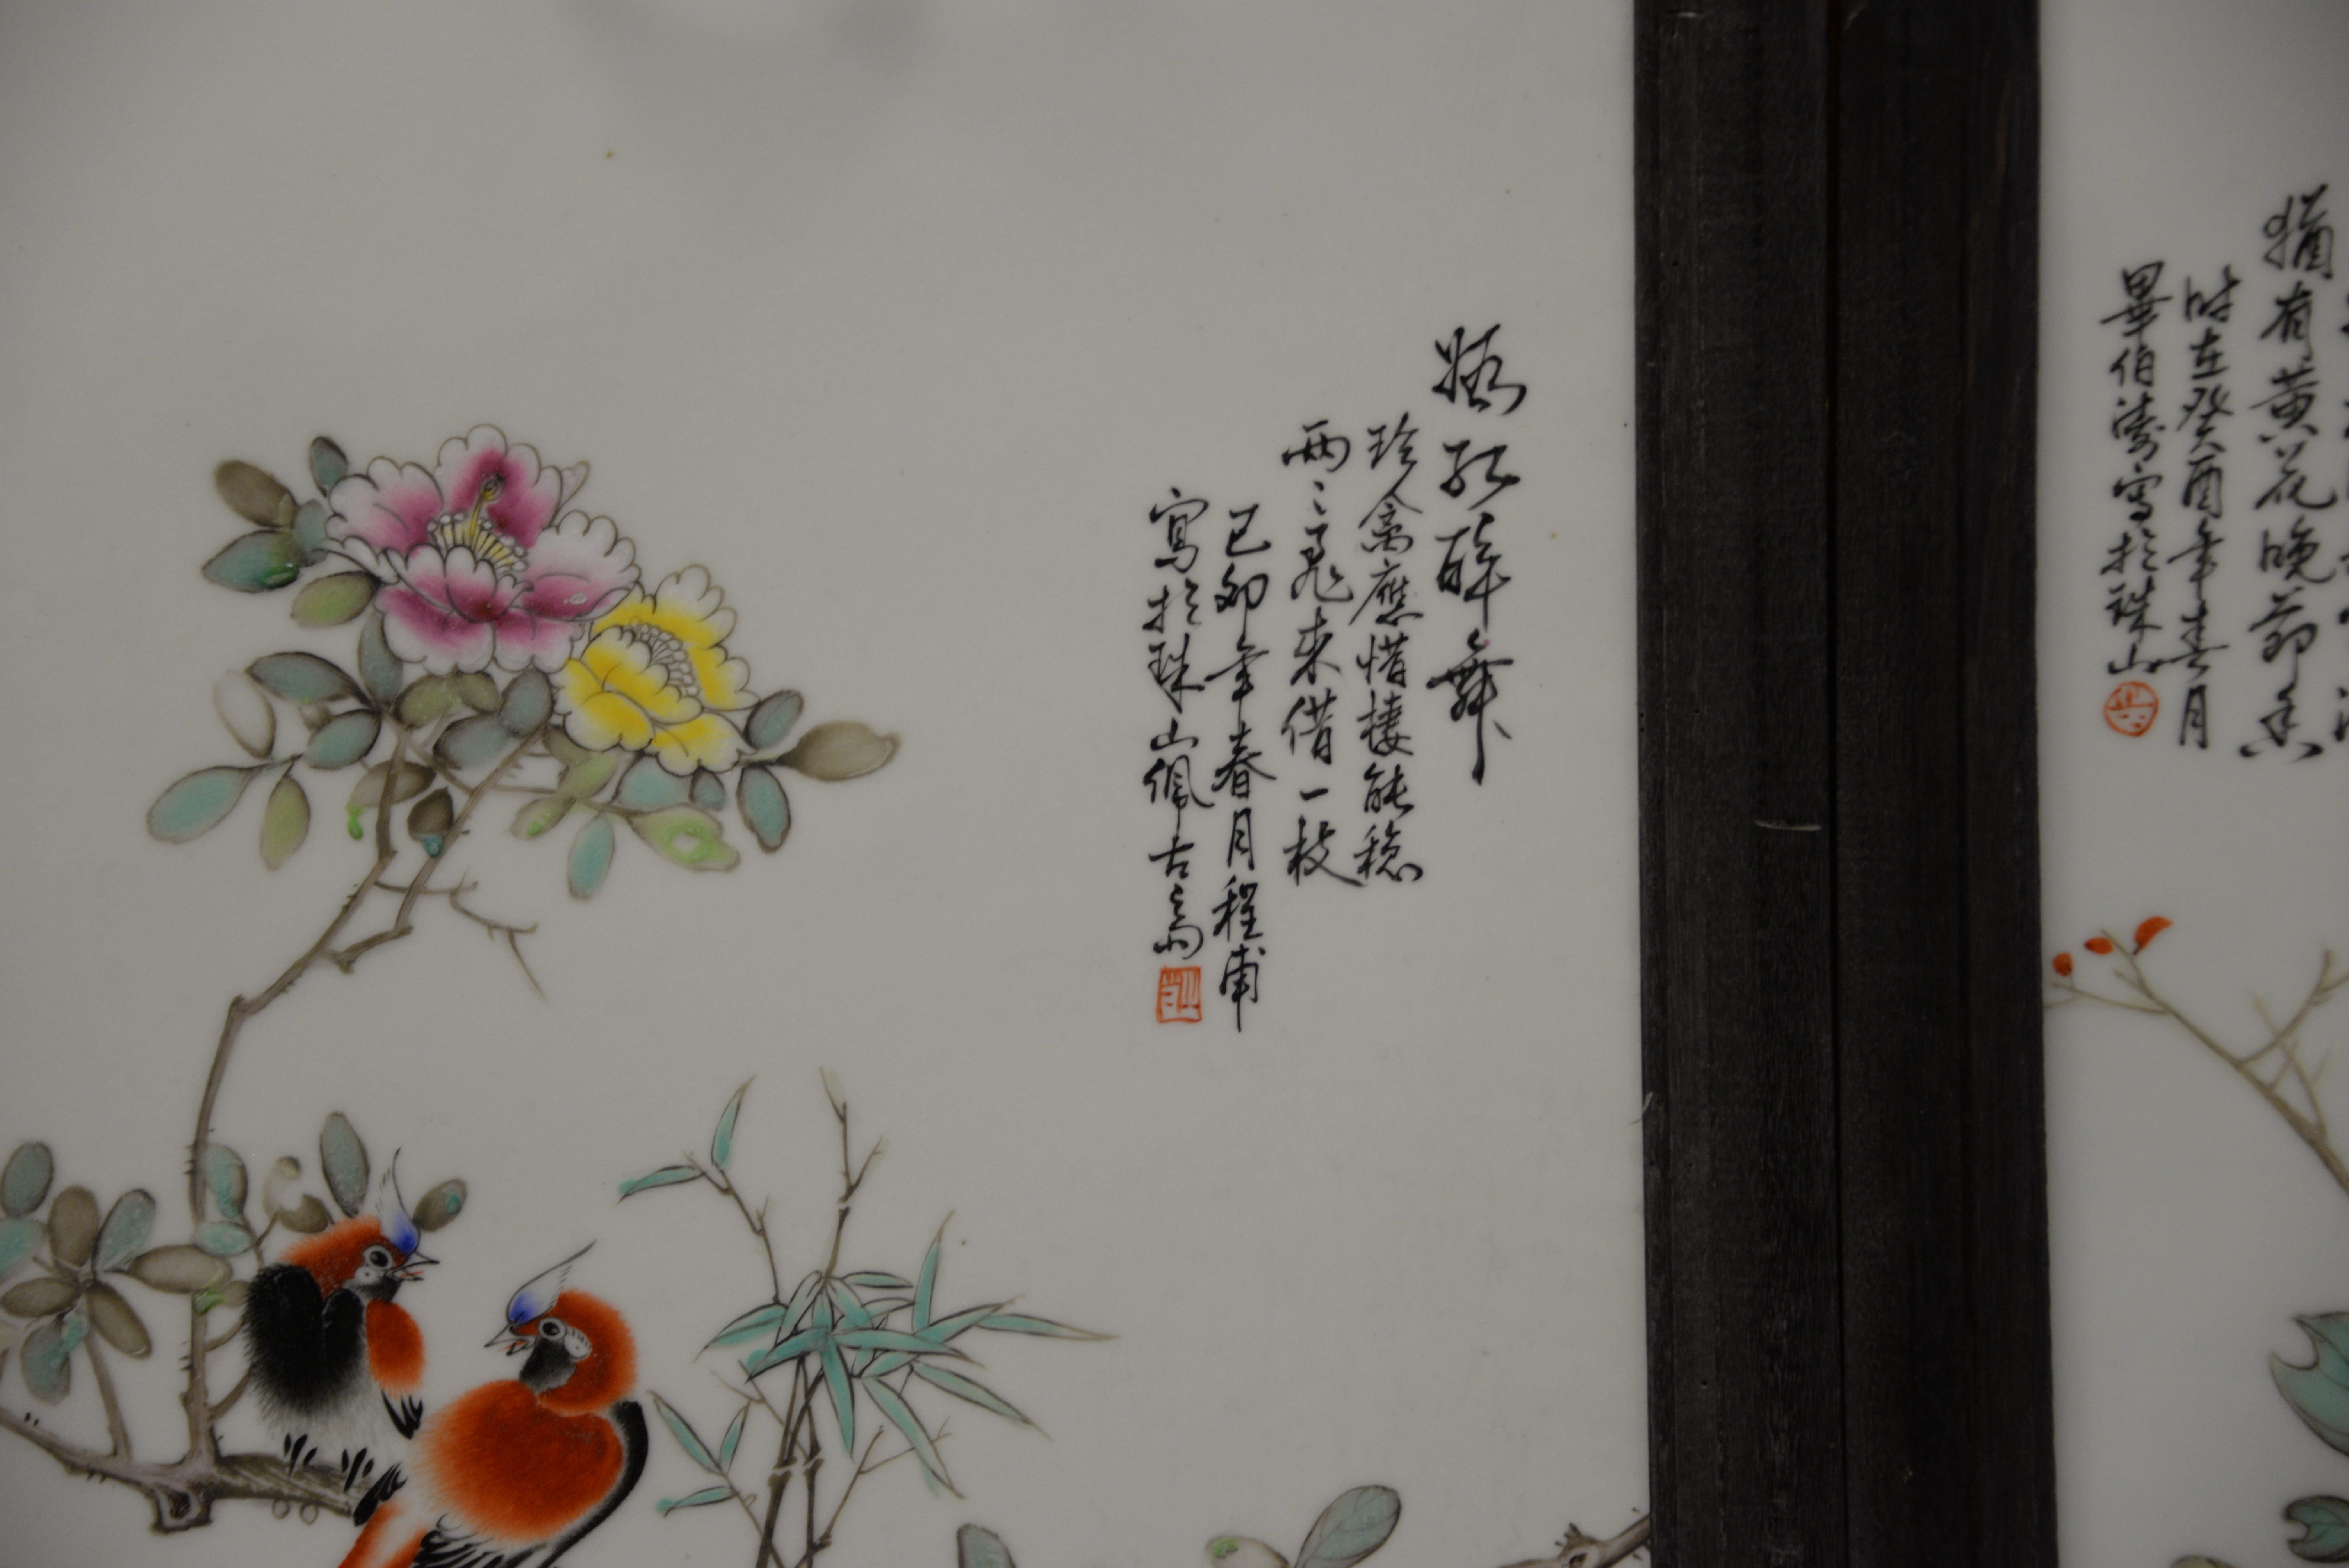 猶有黄花晚節香
时在癸酉年春月
畢伯濤寫於珠山
红醉舞
珍禽應惜棲能穩
兩〻飛来借一枝
己卯年春月程甫
寫於珠山佩古齋